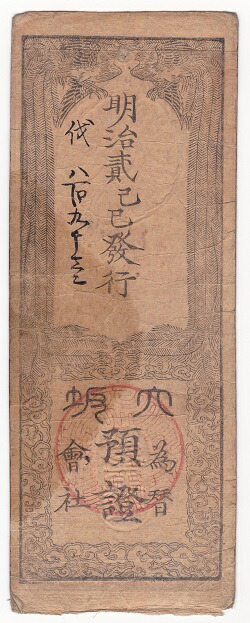 明治貳己巳發行
伐 八百九十三
大坂
為替
會社
預證